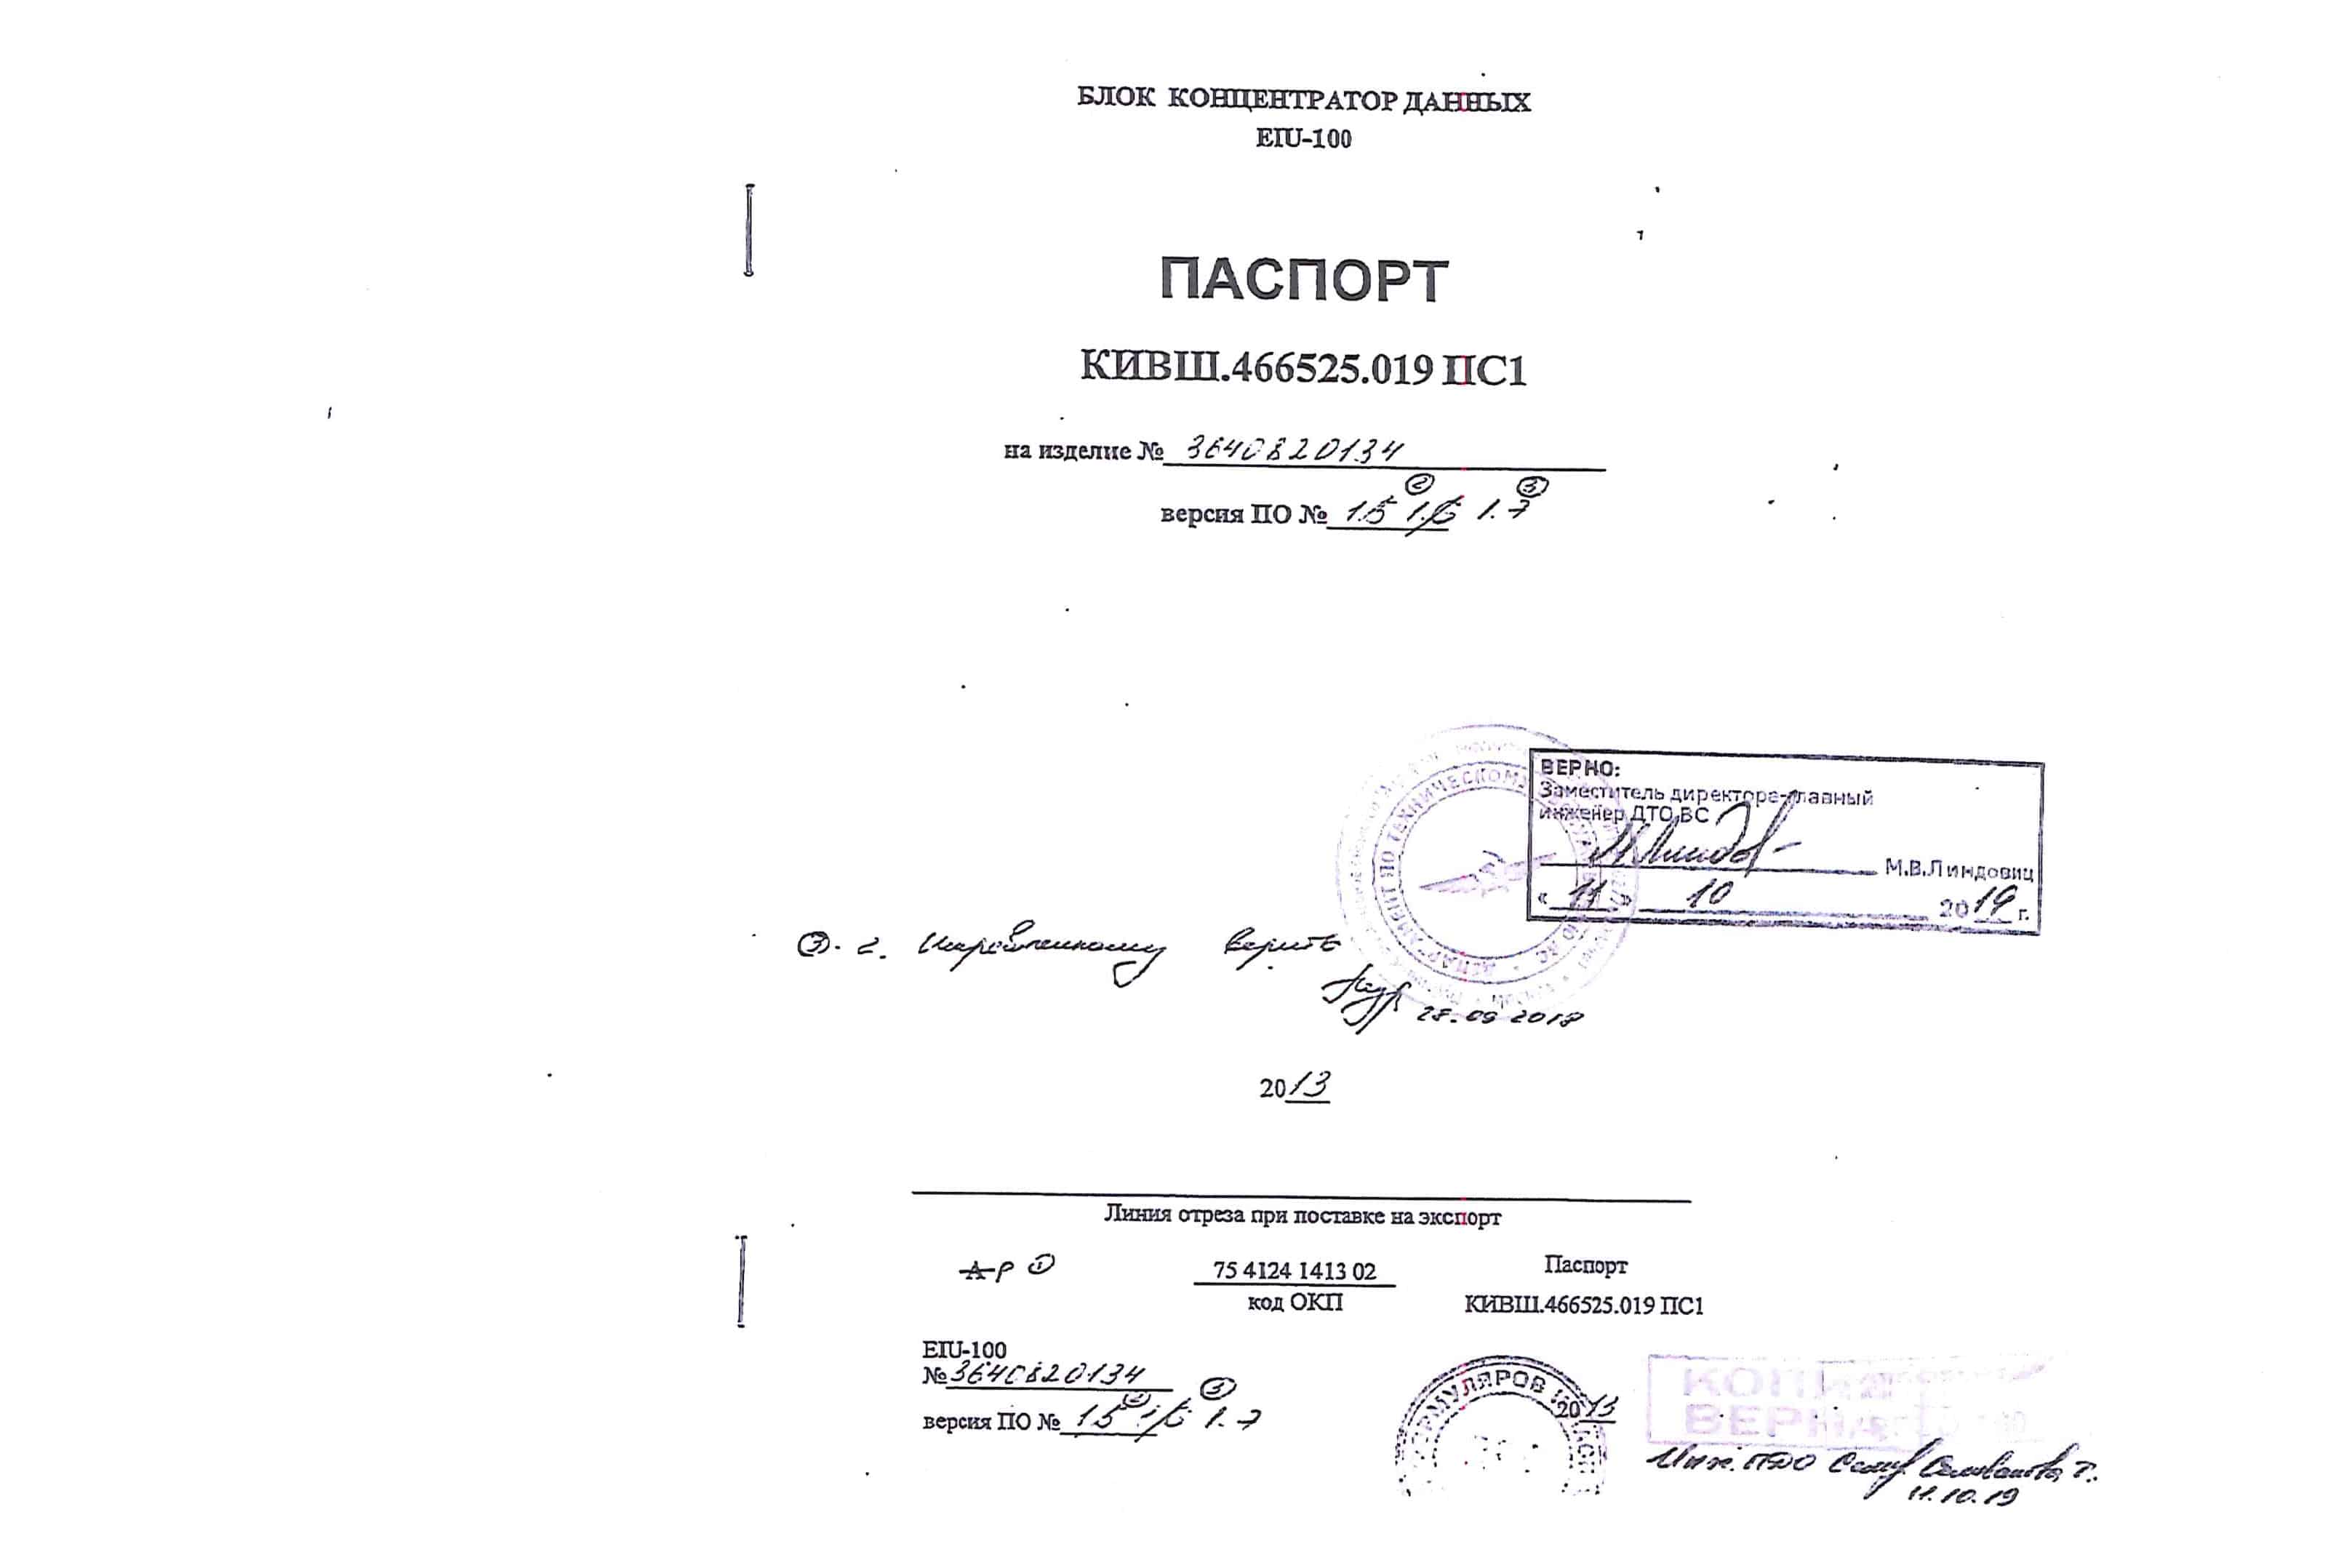 БЛОК КОНЦЕНТРАТОР ДАННЫХ
EIU-100
ПАСПОРТ
КИВШ.466525.019 ПС1
на изделие № 3640820134
② ③
версия ПО № 1.5 1.6 1.7
ВЕРНО:
Заместитель директора-главный
инженер ДТО ВС
М.В.Линдовиц
« 11 » 10 2019 г.
Исправленному верить
28.09 2018
2013
Линия отреза при поставке на экспорт
А Р ① 75 4124 1413 02 Паспорт
код ОКП КИВШ.466525.019 ПС1
EIU-100
№ 3640820134
② ③
версия ПО № 1.5 1.6 1.7
2013
КОПИЯ
ВЕРНА
Инж. ПДО
11.10.19